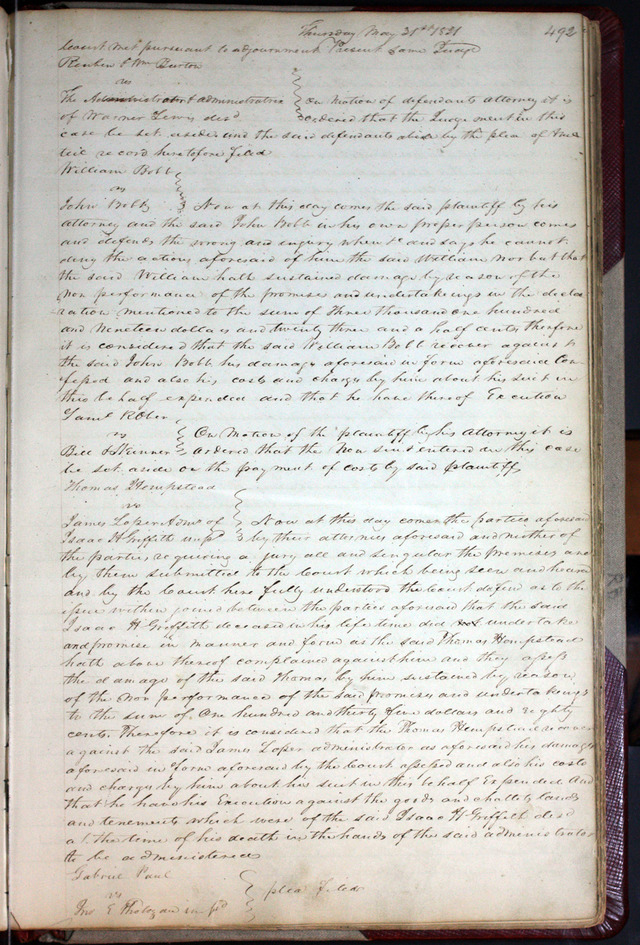 Thursday May 31st 1821 492
Court met pursuant to adjournment Present same Judge
Reuben & Wm Burton
vs
The Administrator & administratrix
of Warner Lewis decd
On motion of defendants attorney it is
ordered that the Judgement in this
case be set aside and the said defendants abide by the plea of
record heretofore filed
William Bobb
vs
John Bobb Now at this day comes the said plaintiff by his
attorney and the said John Bobb in his own proper person comes
and defends the wrong and injury when &c and says he cannot
deny the action aforesaid of him the said William nor but that
the said William hath sustained damage by reason of the
non performance of the promises and undertakings in the decla
ration mentioned to the sum of Three thousand one hundred
and Nineteen dollars and twenty three and a half cents therefore
it is considered that the said William Bobb recover against
the said John Bobb his damage aforesaid in form aforesaid Con
fessed and also his costs and charges by him about his suit in
this behalf expended and that he have thereof Execution
vs
On Motion of the plaintiff by his Attorney it is
Bill Skinner ordered that the Non suit entered in this case
be set aside on the payment of costs by said plaintiff
Thomas Hempstead
vs
James Loper Admr of
Isaac H Griffith
Now at this day comes the parties aforesaid
by their attornies aforesaid and neither of
the parties requiring a jury all and singular the Premises are
by them submitted to the Court which being seen and heard
and by the Court here fully understood the Court doth find as to the
issue within joined between the parties aforesaid that the said
Isaac H Griffith deceased in his life time did undertake
and promise in manner and form as the said Thomas Hempstead
hath above thereof complained against him and they assess
the damage of the said Thomas by him sustained by reason
of the Non performance of the said promises and undertakings
to the sum of One hundred and thirty five dollars and Eighty
cents. Therefore it is considered that the Thomas Hempstead recover
against the said James Loper administrator as aforesaid his damages
aforesaid in form aforesaid by the Court assessed and also his costs
and charges by him about his suit in this behalf Expended And
that he have his Execution against the goods and chattels lands
and tenements which were of the said Isaac H Griffith decd
at the time of his death in the hands of the said administrator
to be administered
Gabriel Paul
vs
plea filed